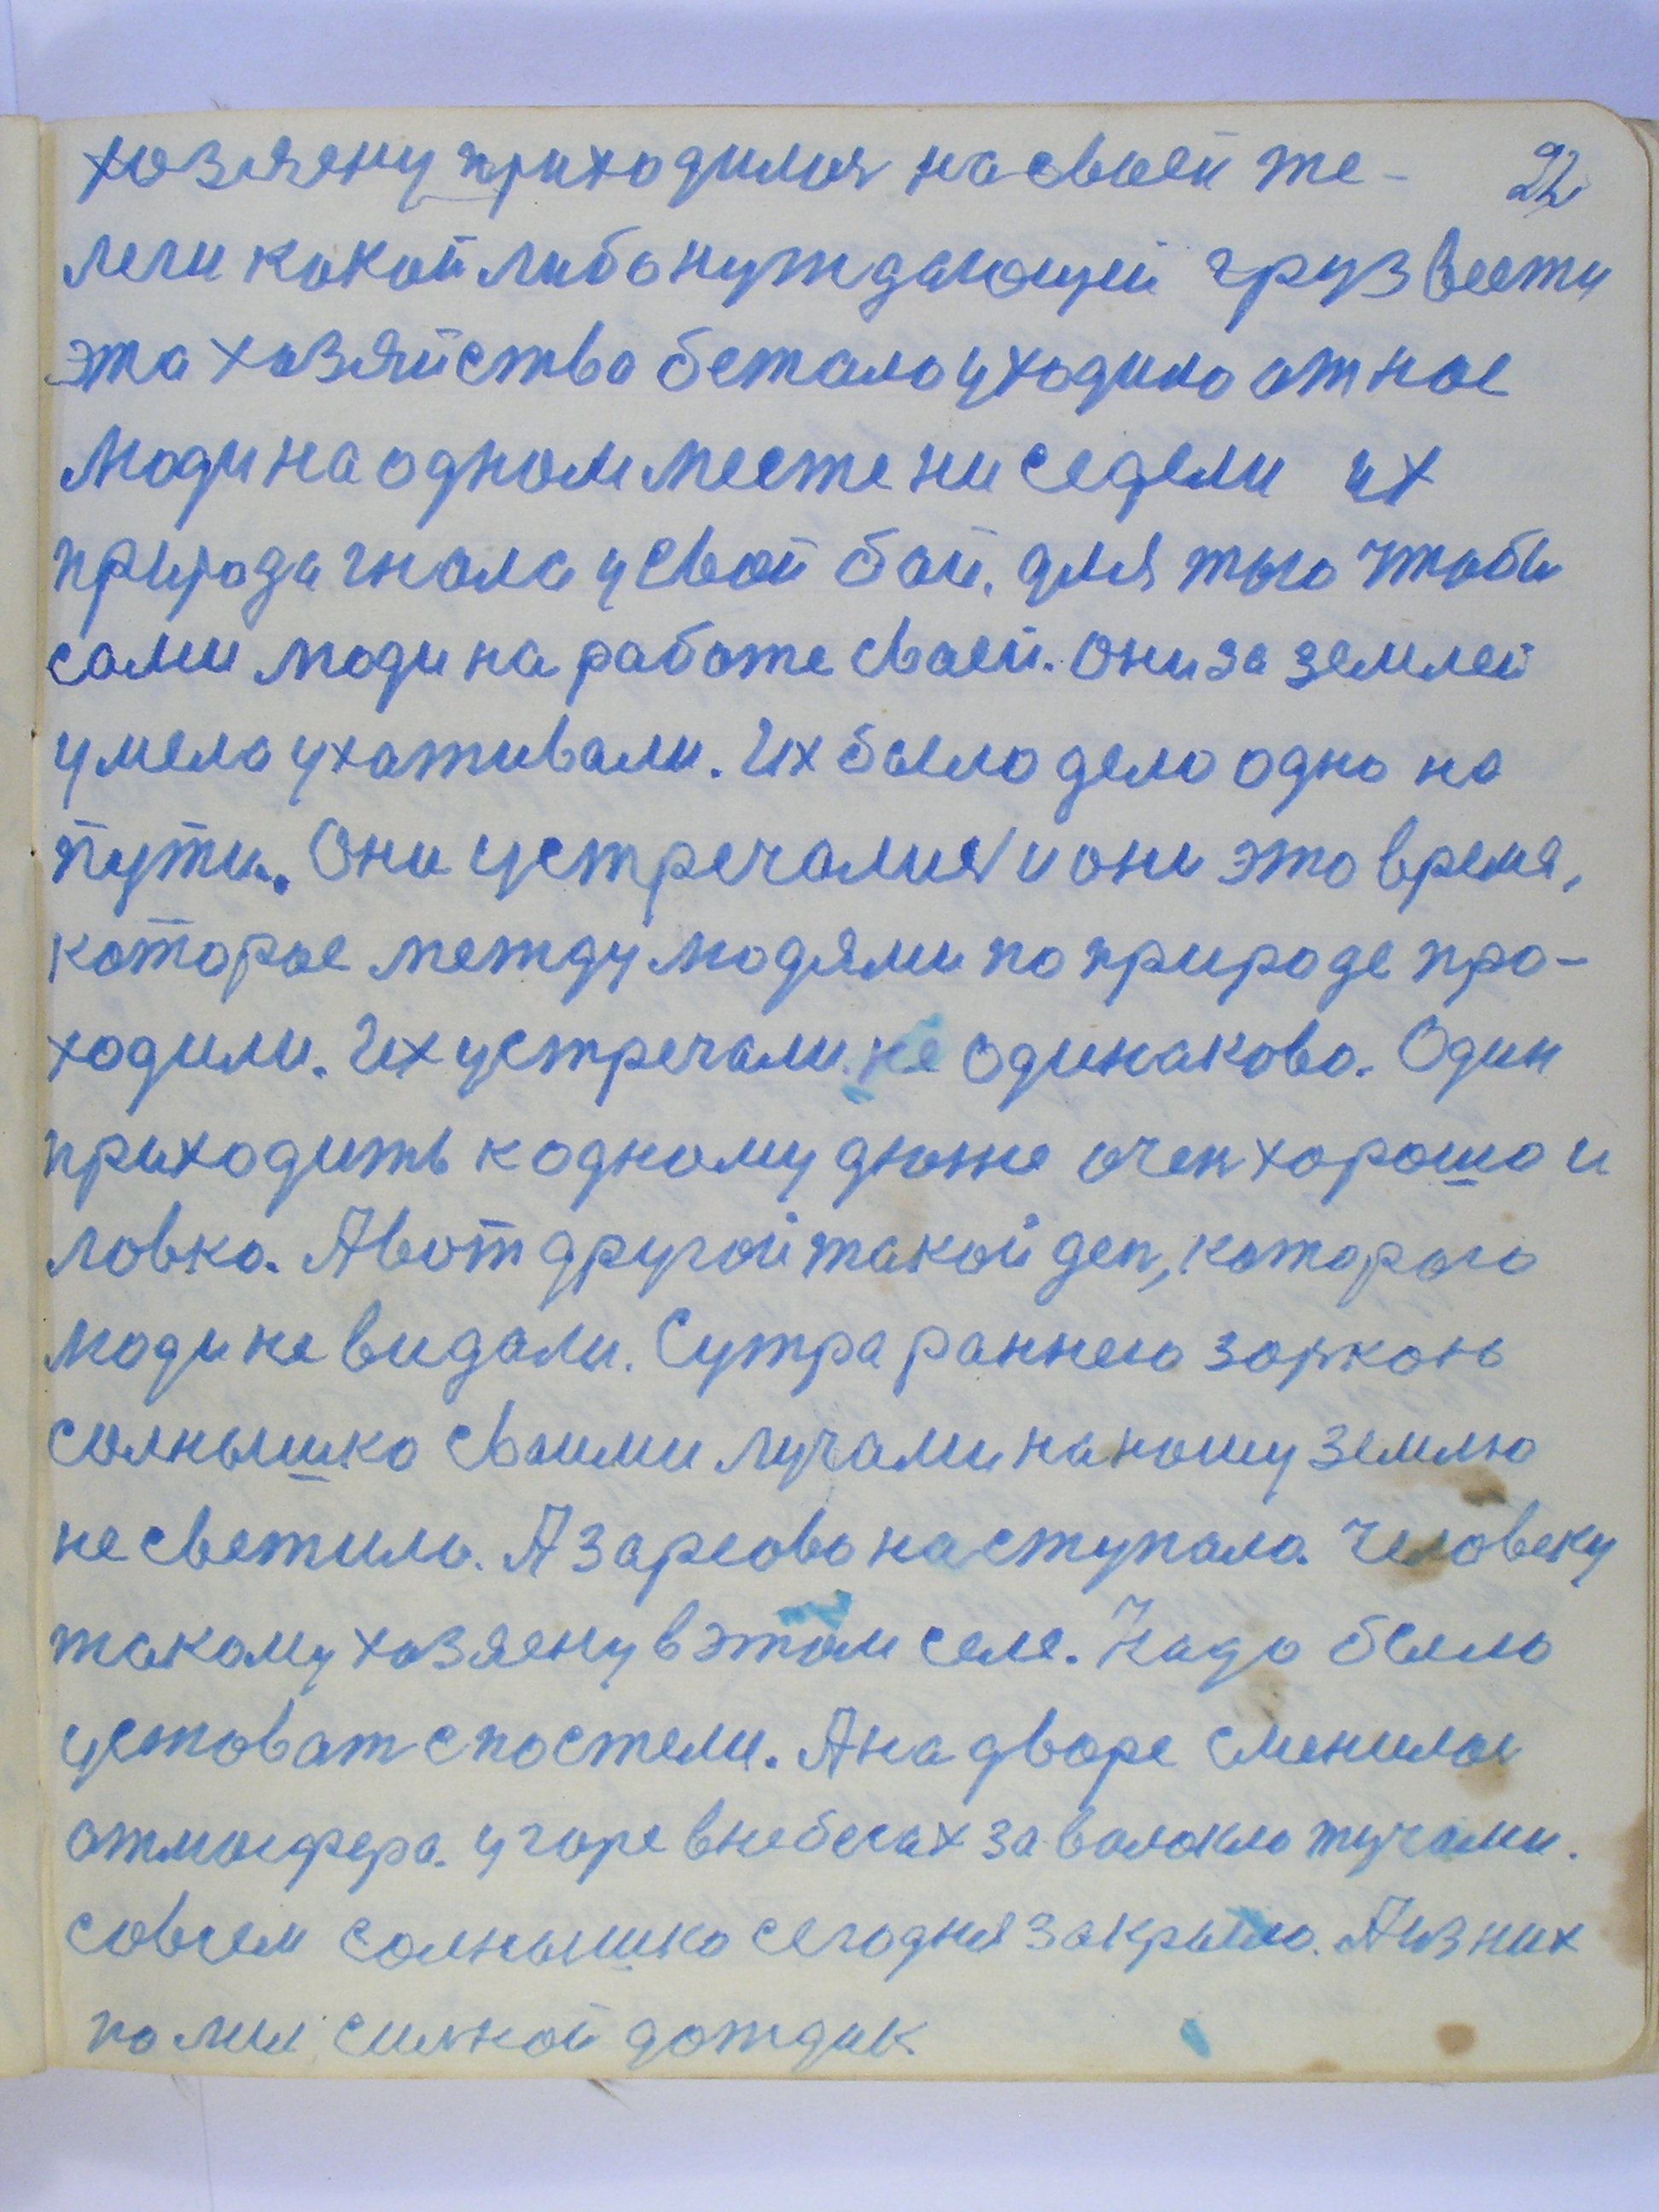 хозяену приходился на своей те- 22
леги какой либо нуждающей груз вести
эта хозяйство бежало уходило от нас
Люди на одном месте ниседели их
природа гнала у свой бой. для того чтобы
сами люди на работе своей. Они за землей
умело ухаживали. Их было дело одно на
пути. Они устречалися и они это время,
которое между людями по природе про-
ходили. Их устречали не одинаково. Один
приходить к одному дюже очен хорошо и
ловко. А вот другой такой ден, которого
люди не видали. С утра раннего
солнышко своими лучами на нашу землю
не светило. А зарево наступало. Человеку
такому хозяену в этом селе. Надо было
устават с постели. А на дворе сменилас
атмосфера. у горе в небесах заволокло тучами.
совсем солнышко сегодня закрыло. А из них
полил силной дождик.